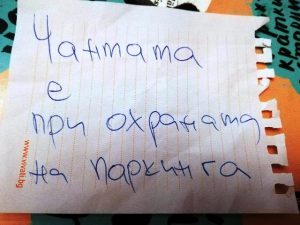 Чантата
е
при охраната
на паркинга
www.vivali.bg